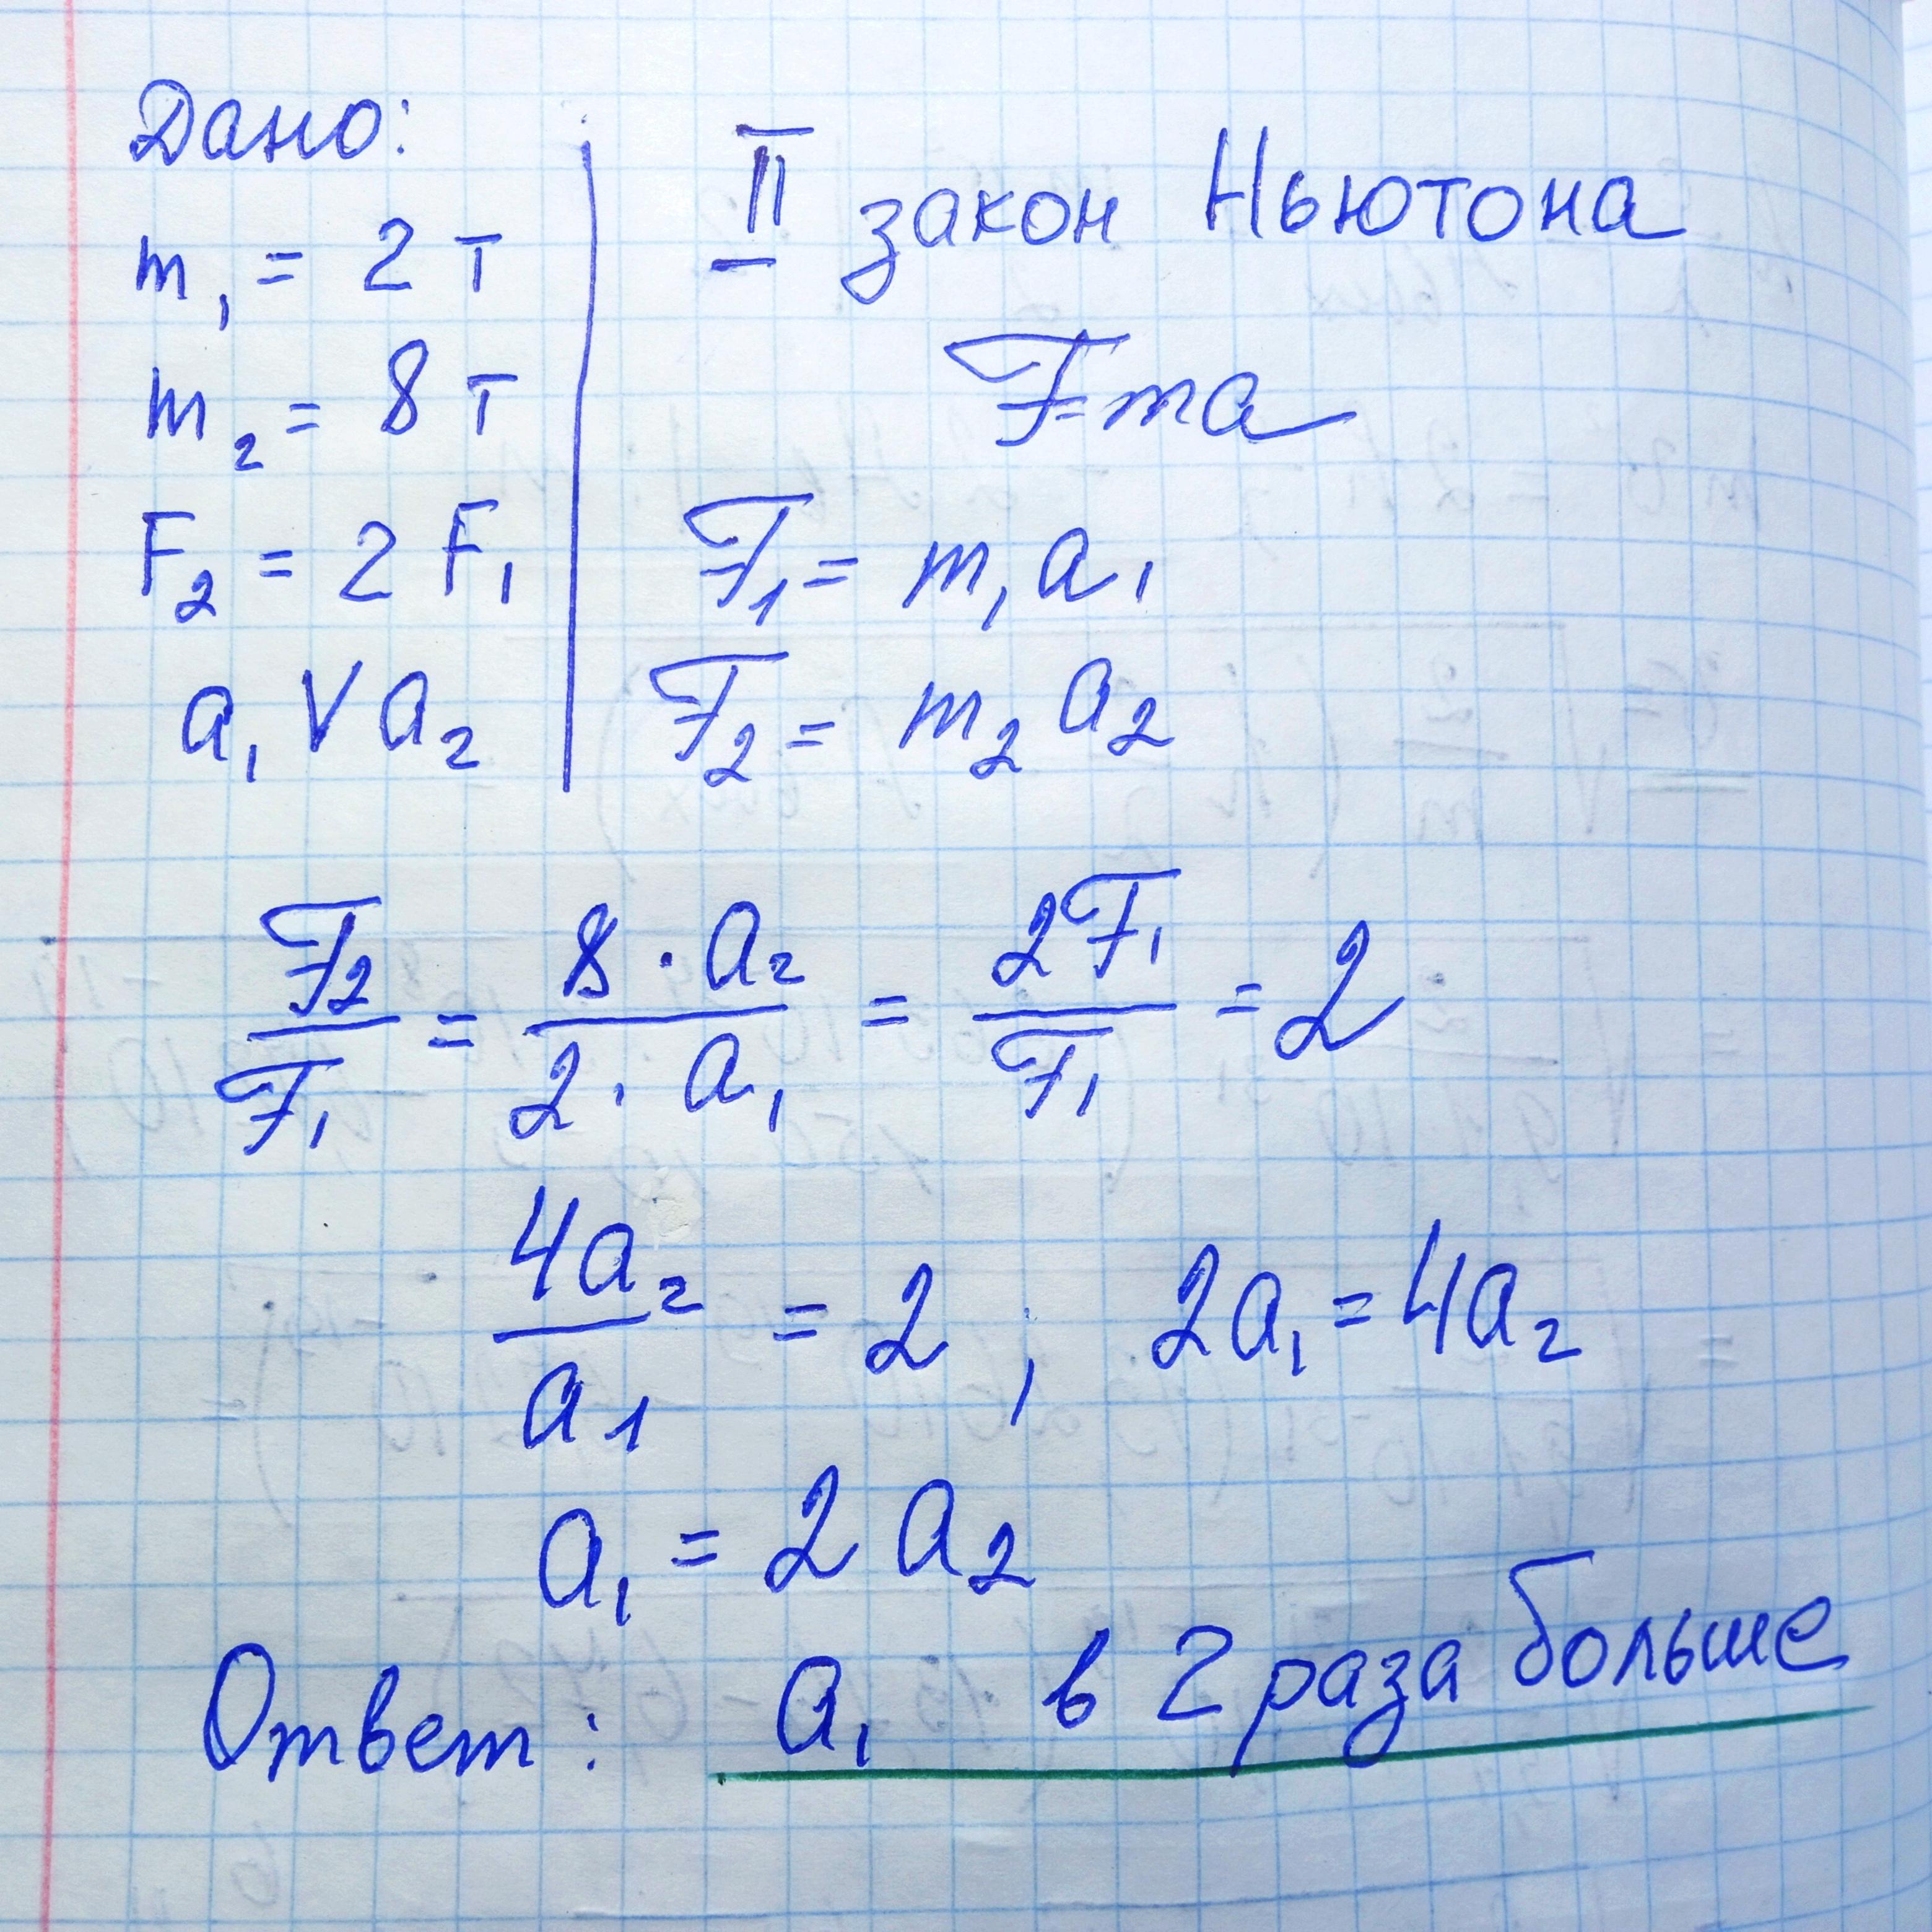 Дано:
m₁ = 2 т
m₂ = 8 т
F₂ = 2 F₁
a₁ V a₂
II закон Ньютона
F=ma
F₁ = m₁a₁
F₂ = m₂a₂
F₂/F₁ = 8·a₂/2·a₁ = 2F₁/F₁ = 2
4a₂/a₁ = 2 ; 2a₁ = 4a₂
a₁ = 2 a₂
Ответ: a₁ в 2 раза больше